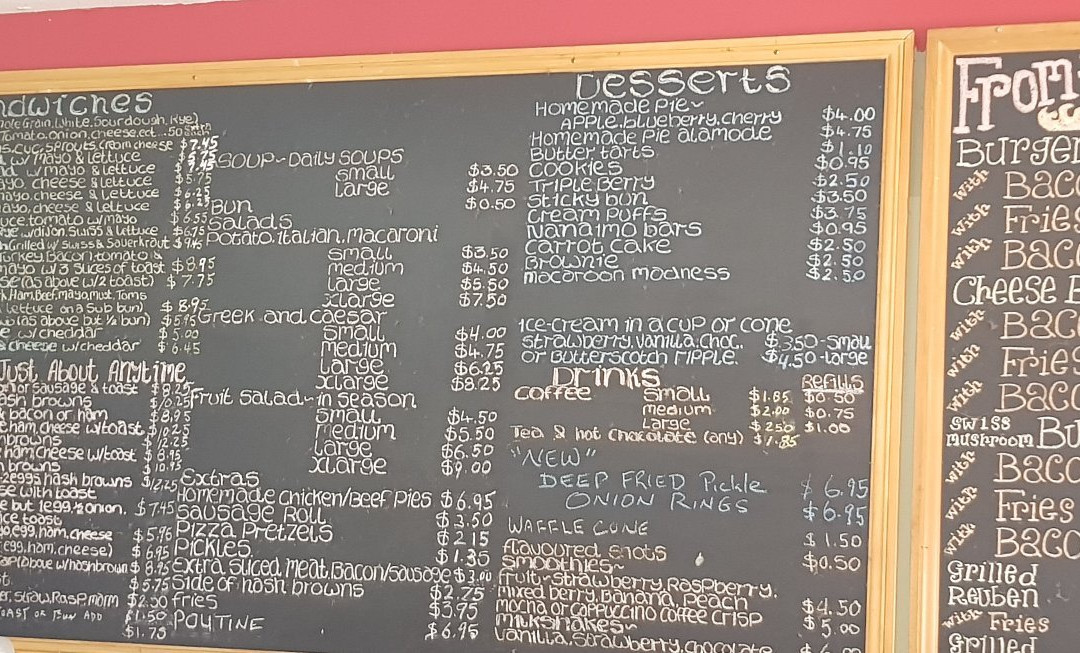 dwiches
ole Grain, White, Sourdough, Rye)
Tomato, onion, cheese, ect... .50 each
s, cuc, sprouts, cream cheese $7.45
w/mayo & lettuce
w/mayo & lettuce
ayo, cheese & lettuce $5.75
mayo, cheese & lettuce $6.25
ayo, cheese & lettuce
uce tomato w/mayo $6.55
ye w/dijon, Swiss & lettuce $6.75
Grilled w/ Swiss & Sauerkraut
Turkey Bacon tomato &
mayo w/3 slices of toast $8.95
se (as above w/2 toast) $7.75
Ham, Beef, mayo, must, Toms
lettuce on a Sub bun) $8.95
(as above but ½ bun) $5.95
e w/cheddar $5.00
& cheese w/cheddar $6.45
Just About Anytime
or sausage & toast
ash browns
bacon or ham $8.95
ham, cheese w/toast
browns $12.25
ham cheese w/toast $8.95
browns $10.95
2 eggs hash browns $12.25
se with toast
e but 1 egg, ½ onion, $7.45
ce toast
egg, ham, cheese $5.95
egg, ham, cheese) $6.95
(above w/hashbrown $8.95
$5.75
er, Straw, Rasp, marm $2.50
TOAST OR BUN ADD $1.50
$1.75
SOUP ~ Daily SOUPS
small $3.50
Large $4.75
Bun $0.50
Salads
Potato, Italian, Macaroni
small $3.50
medium $4.50
large $5.50
xlarge $7.50
Greek and Caesar
Small $4.00
Medium $4.75
Large $6.25
xlarge $8.25
Fruit Salad ~ in Season
small $4.50
medium $5.50
Large $6.50
xlarge $9.00
Extras
Homemade chicken/Beef Pies $6.95
Sausage Roll $3.50
Pizza Pretzels $2.15
Pickles $1.35
Extra sliced meat, Bacon/Sausage $3.00
Side of hash browns $2.75
fries $3.95
POUTINE $6.95
Desserts
Homemade Pie ~
APPLE, blueberry, cherry $4.00
Homemade Pie alamode $4.75
Butter tarts $1.10
Cookies $0.95
Triple Berry $2.50
Sticky bun $3.50
Cream Puffs $3.75
Nanaimo bars $0.95
Carrot cake $2.50
Brownie $2.50
macaroon madness $2.50
Ice-cream in a cup or cone
Strawberry, vanilla, choc, $3.50-small
or Butterscotch ripple. $4.50-large
Drinks Refills
Coffee Small $1.85 $0.50
medium $2.00 $0.75
Large $2.50 $1.00
Tea & hot chocolate (any) $1.85
"NEW"
DEEP FRIED Pickle $6.95
ONION RINGS $6.95
WAFFLE CONE $1.50
flavoured shots $0.50
Smoothies ~
fruit - strawberry, Raspberry,
mixed berry, Banana, Peach $4.50
mocha or cappuccino coffee crisp $5.00
Milkshakes ~
Vanilla, Strawberry, chocolate
From
Burger
with Baco
with Fries
with Baco
Cheese B
with Baco
with Fries
with Baco
Swiss
mushroom Bu
with Baco
with Fries
with Baco
Grilled
Reuben
with Fries
Grilled